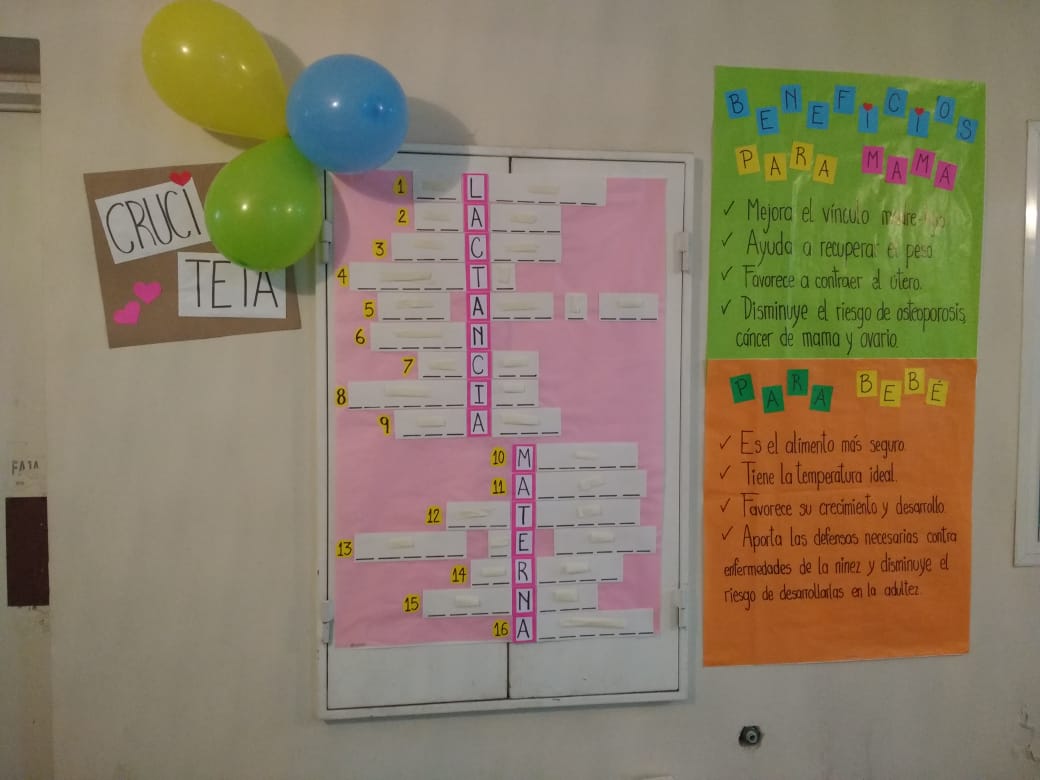 CRUCI
TETA
1
2
3
4
5
6
7
8
9
LACTANCIA
10
11
12
13
14
15
16
MATERNA
BENEFICIOS
PARA MAMA
✓ Mejora el vínculo madre-hijo.
✓ Ayuda a recuperar el peso.
✓ Favorece a contraer el útero.
✓ Disminuye el riesgo de osteoporosis,
cáncer de mama y ovario.
PARA BEBÉ
✓ Es el alimento más seguro.
✓ Tiene la temperatura ideal.
✓ Favorece su crecimiento y desarrollo.
✓ Aporta las defensas necesarias contra
enfermedades de la ninez y disminuye el
riesgo de desarrollarlas en la adultez.